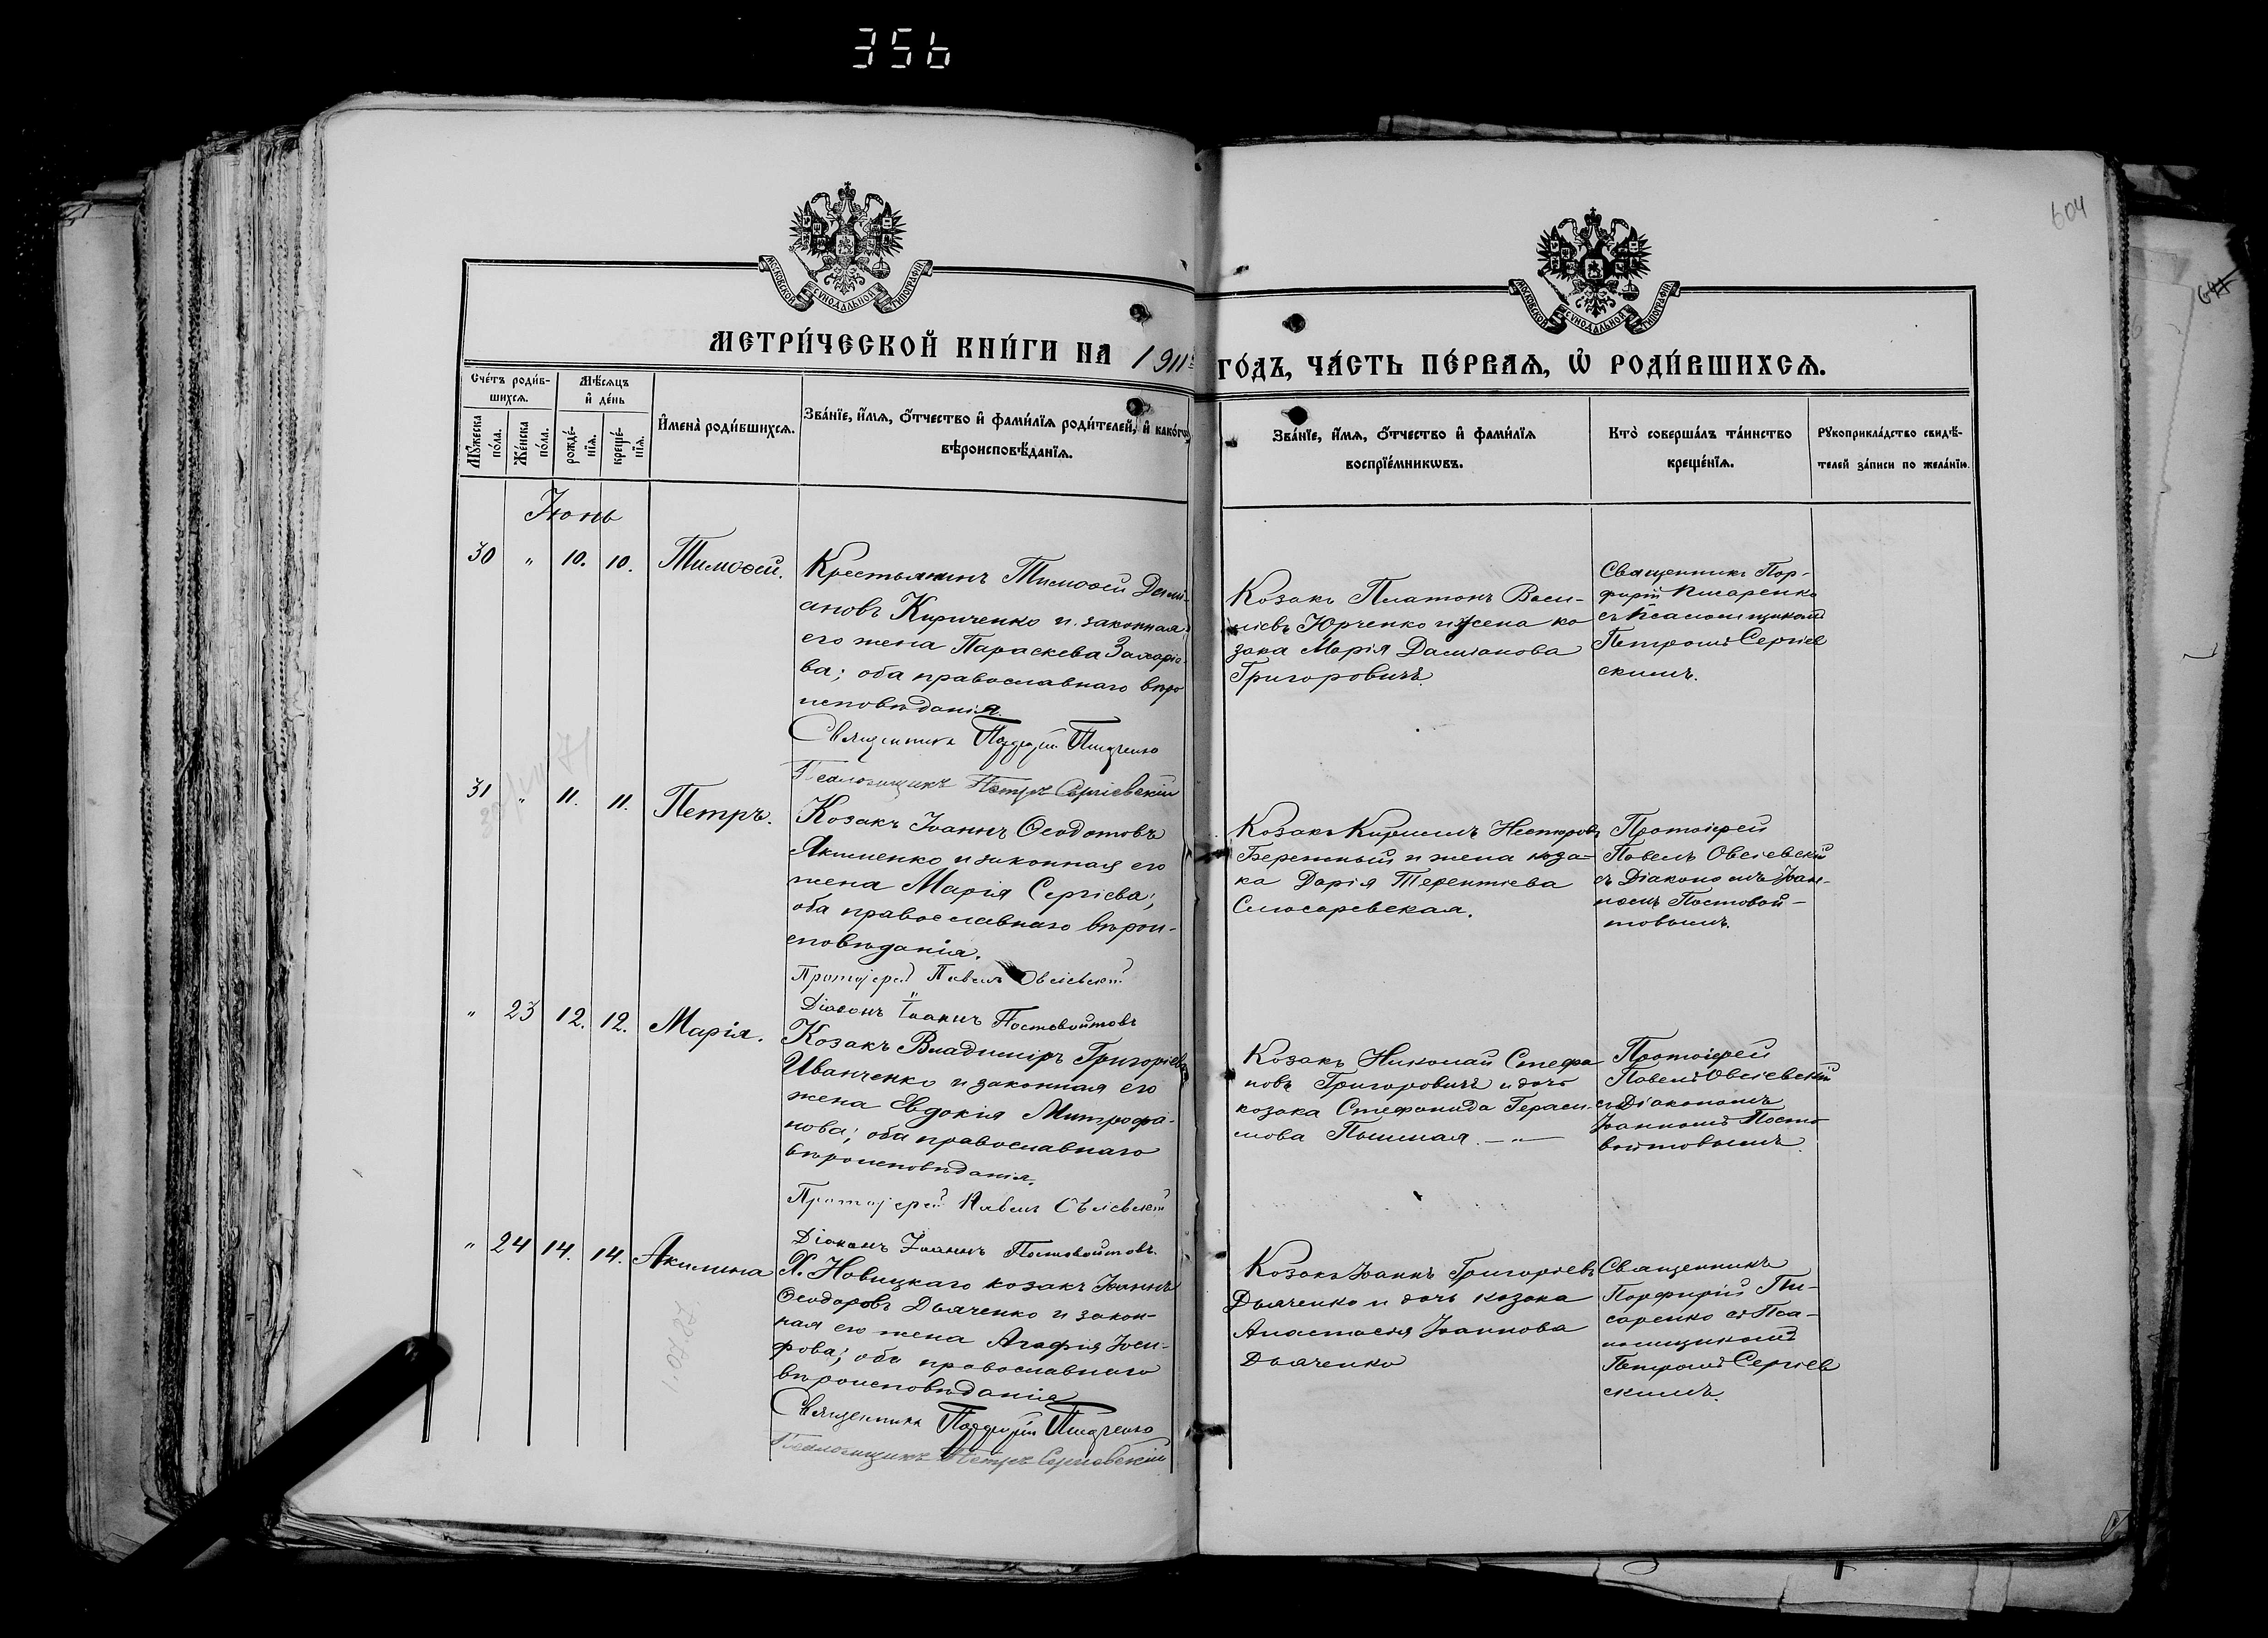 356
604
МОСКОВСКОЙ СѴНОДАЛЬНОЙ ТИПОГРАФІИ
МОСКОВСКОЙ СѴНОДАЛЬНОЙ ТИПОГРАФІИ
МЕТРИ́ЧЕСКОЙ КНИ́ГИ НА 1911 ГО́ДЪ, ЧА́СТЬ ПЕ́РВАѦ, Ѽ РОДИ́ВШИХСѦ.
Сче́тъ роди́в-
шихсѧ.
Мꙋ́жеска по́ла.
Же́нска по́ла.
Мѣ́сѧцъ
и҆ де́нь
рожде́-
нїѧ.
креще́-
нїѧ.
И҆мена̀ роди́вшихсѧ.
Зва́нїе, и҆́мѧ, ѻ҆́тчество и҆ фами́лїѧ роди́телей, и҆ како́гѡ
вѣроисповѣ́данїѧ.
Зва́нїе, и҆́мѧ, ѻ҆́тчество и҆ фами́лїѧ
воспрїе́мникѡвъ.
Кто̀ соверша́лъ та́инство
креще́нїѧ.
Рꙋкоприкла́дство свидѣ́-
телей за́писи по жела́нїю.
Іюнь
30 " 10. 10. Тимоѳей.
Крестьянинъ Тимоѳей Дамі-
ановъ Кириченко и законная
его жена Параскева Захаріе-
ва; оба православнаго вѣро
исповѣданія.
Священникъ Порфирій Писаренко
Псаломщикъ Петръ Сергіевскій
Козакъ Платонъ Васи-
ліевъ Юрченко и жена ко
зака Марія Даміанова
Григоровичъ.
Священникъ Пор-
фирій Писаренко
съ Псаломщикомъ
Петромъ Сергіев
скимъ.
31 " 11. 11. Петръ.
Козакъ Іоаннъ Ѳеодотовъ
Якименко и законная его
жена Марія Сергіева;
оба православнаго вѣрои-
сповѣданія.
Протоіерей Павелъ Овсіевскій
Діаконъ Іоаннъ Постовойтовъ
Козакъ Кириллъ Несторовъ
Бережный и жена коза-
ка Дарія Терентіева
Слюсаревская.
Протоіерей
Павелъ Овсіевскій
съ Діакономъ Іоан-
номъ Постовой-
товымъ.
" 23 12. 12. Марія.
Козакъ Владиміръ Григоріевъ
Иванченко и законная его
жена Евдокія Митрофа-
нова; оба православнаго
вѣроисповѣданія.
Протоіерей Павелъ Овсіевскій
Діаконъ Іоаннъ Постовойтовъ.
Козакъ Николай Стефа
новъ Григоровичъ и дочь
козака Стефанида Гераси-
мова Пышная. — " —
Протоіерей
Павелъ Овсіевскій
съ Діакономъ
Іоанномъ Посто
войтовымъ.
" 24 14. 14. Акилина
Х. Новицкаго козакъ Іоаннъ
Ѳеодоровъ Дьяченко и закон-
ная его жена Агафія Іоси-
фова; оба православнаго
вѣроисповѣданія
Священникъ Порфирій Писаренко
Псаломщикъ Петръ Сергіевскій
Козакъ Іоаннъ Григоріевъ
Дьяченко и дочь козака
Анастасія Іоаннова
Дьяченко
Священникъ
Порфирій Пи-
саренко съ Пса-
ломщикомъ
Петромъ Сергіев
скимъ.